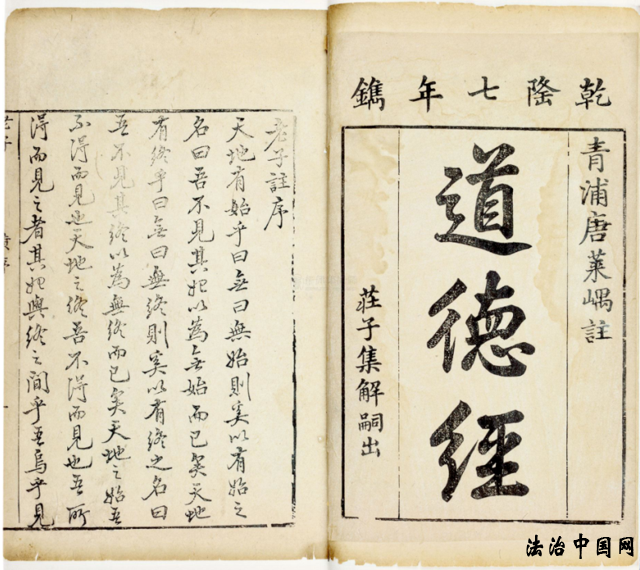 乾隆七年鐫
青浦唐萊嵎註
道德經
莊子集解嗣出
老子註序
天地有始乎曰無曰無始則奚以有始之
名曰吾不見其始以為無始而已矣天地
有終乎曰無曰無終則奚以有終之名曰
吾不見其終以為無終而已矣天地之始吾
不得而見也天地之終吾不得而見也吾所
得而見之者其始與終之間乎吾烏乎見
法治中国网